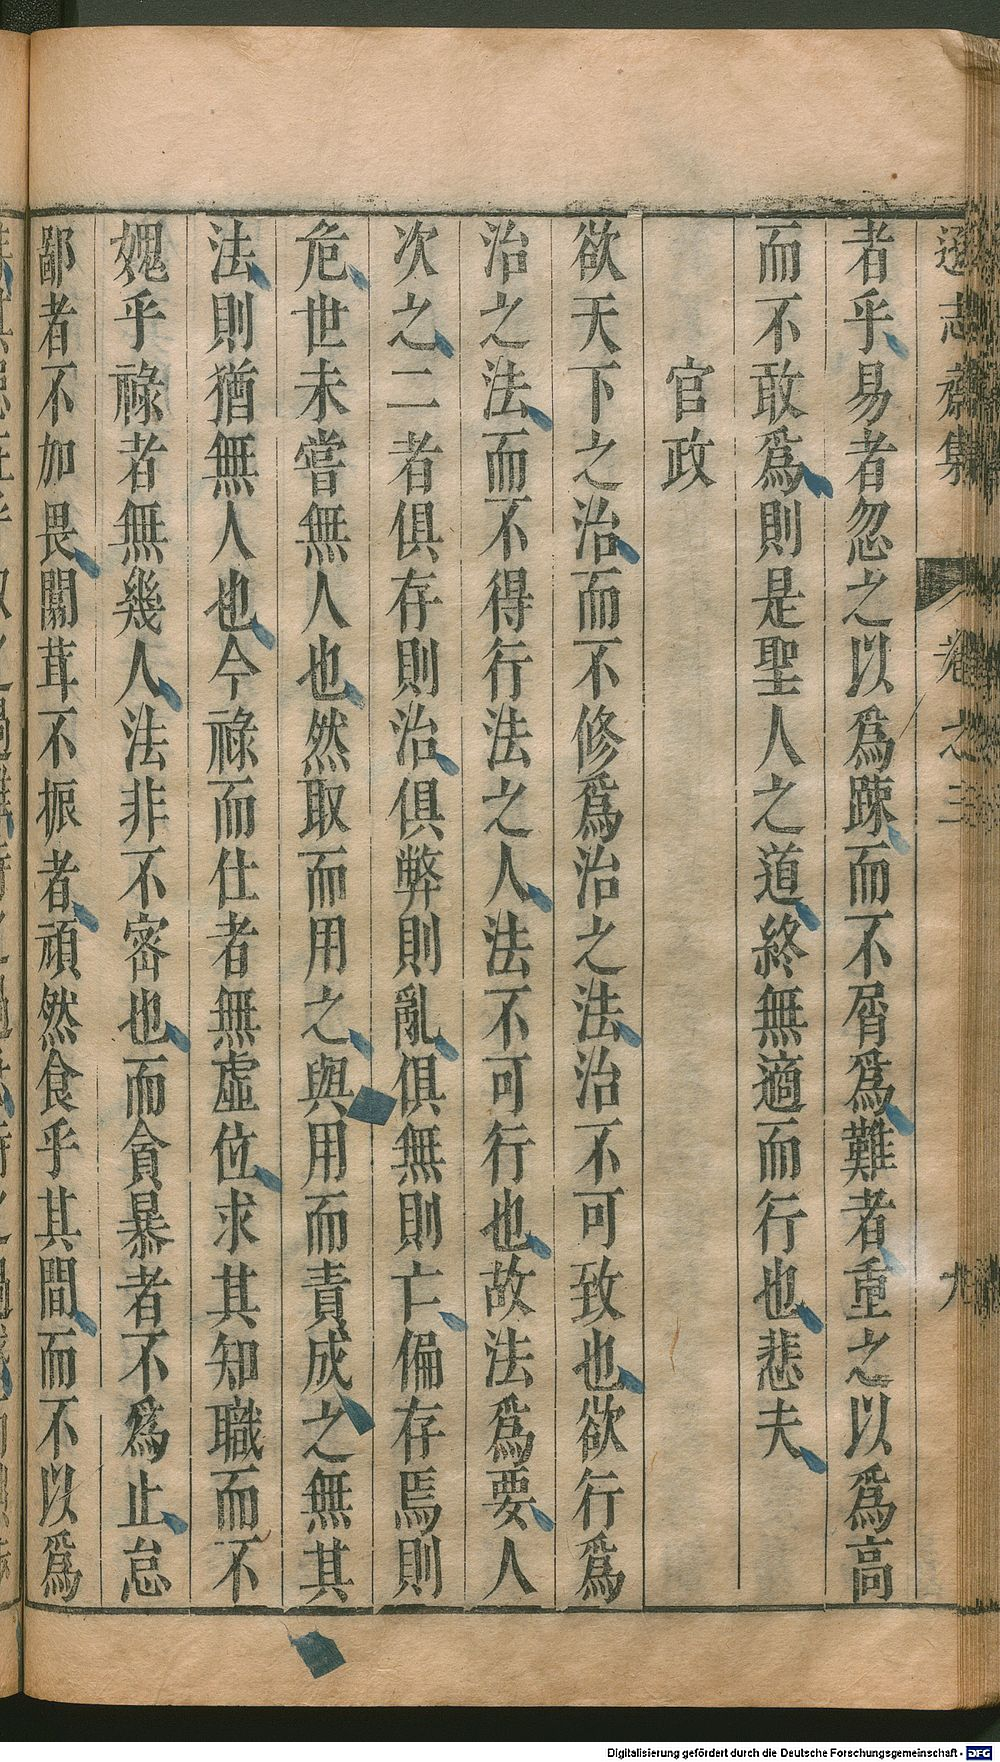 遜志齋集 卷之三 九
者乎易者忽之以爲踈而不屑爲難者重之以爲高
而不敢爲則是聖人之道終無適而行也悲夫
官政
欲天下之治而不修爲治之法治不可致也欲行爲
治之法而不得行法之人法不可行也故法爲要人
次之二者俱存則治俱弊則亂俱無則亡偏存焉則
危世未嘗無人也然取而用之與用而責成之無其
法則猶無人也今祿而仕者無虛位求其知職而不
媿乎祿者無幾人法非不密也而貪暴者不爲止怠
鄙者不加畏闒茸不振者頑然食乎其間而不以爲
Digitalisierung gefördert durch die Deutsche Forschungsgemeinschaft - DFG